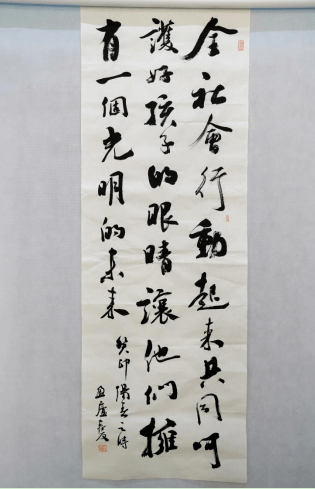 全社會行動起来共同呵
護好孩子的眼睛讓他們擁
有一個光明的未来
癸卯陽春之時